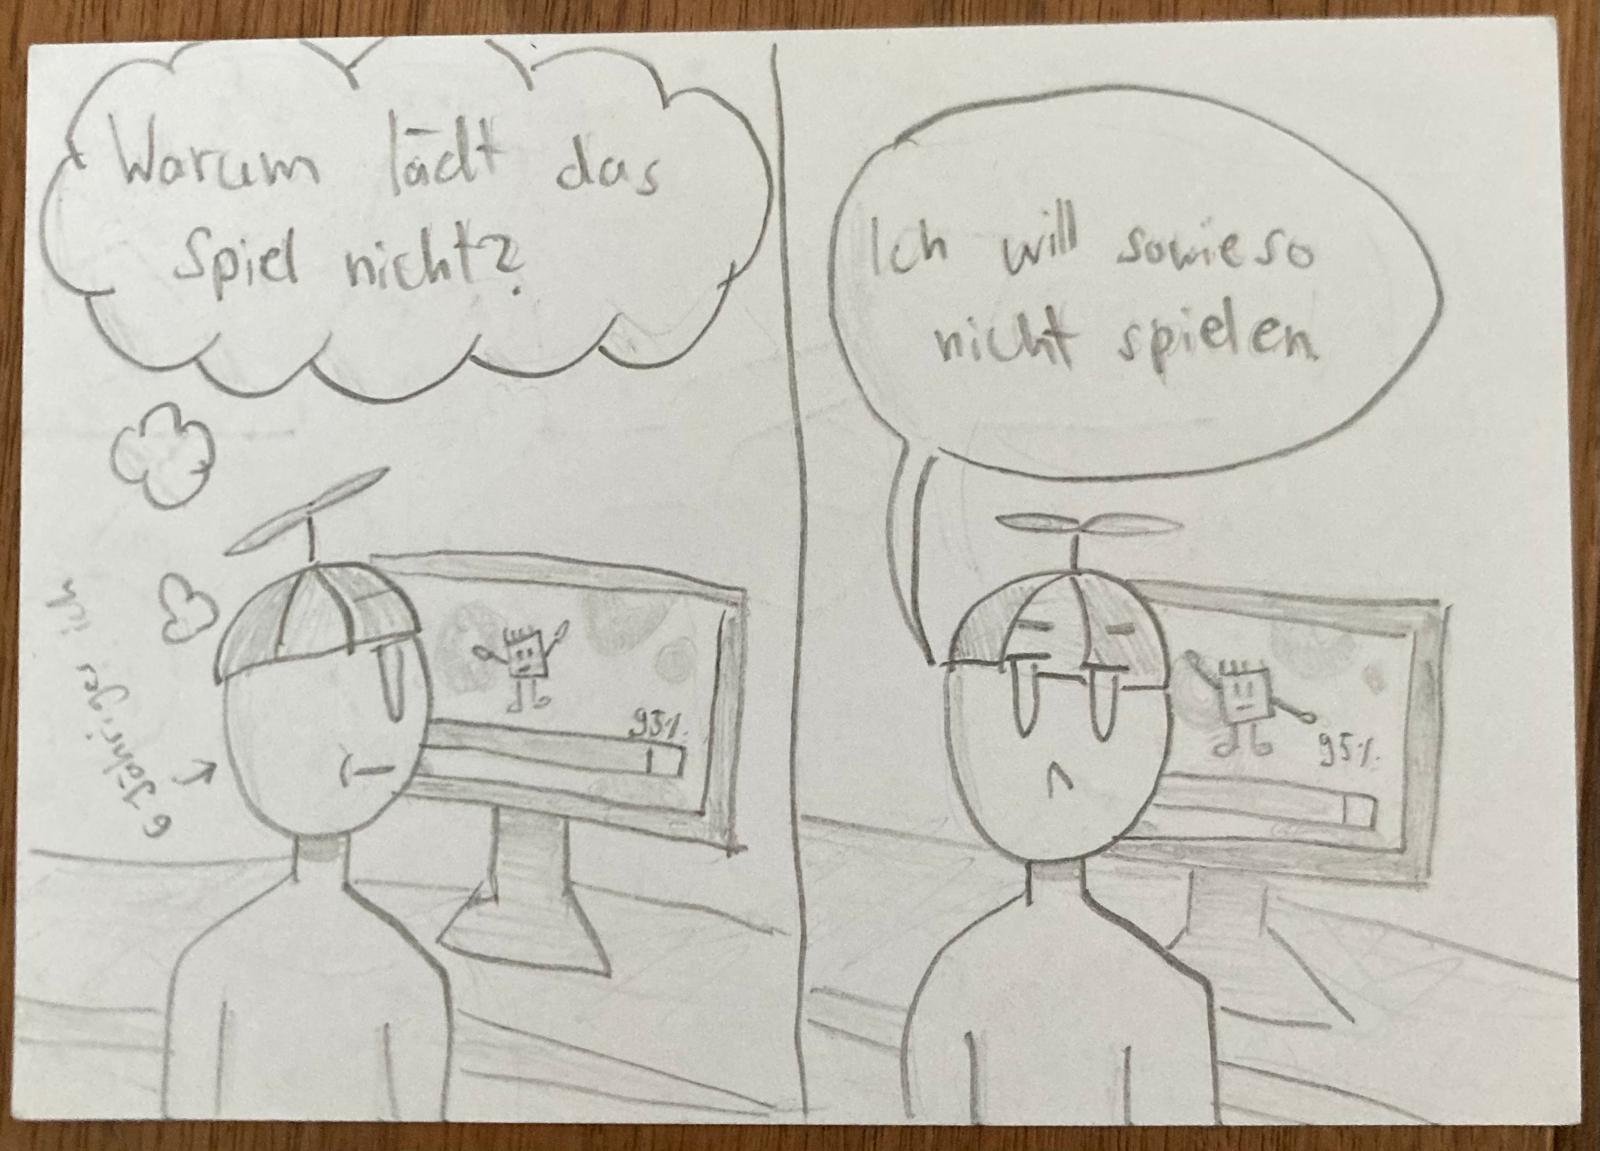 Warum lädt das
Spiel nicht?
6 Jähriger ich
95%
Ich will sowieso
nicht spielen.
95%